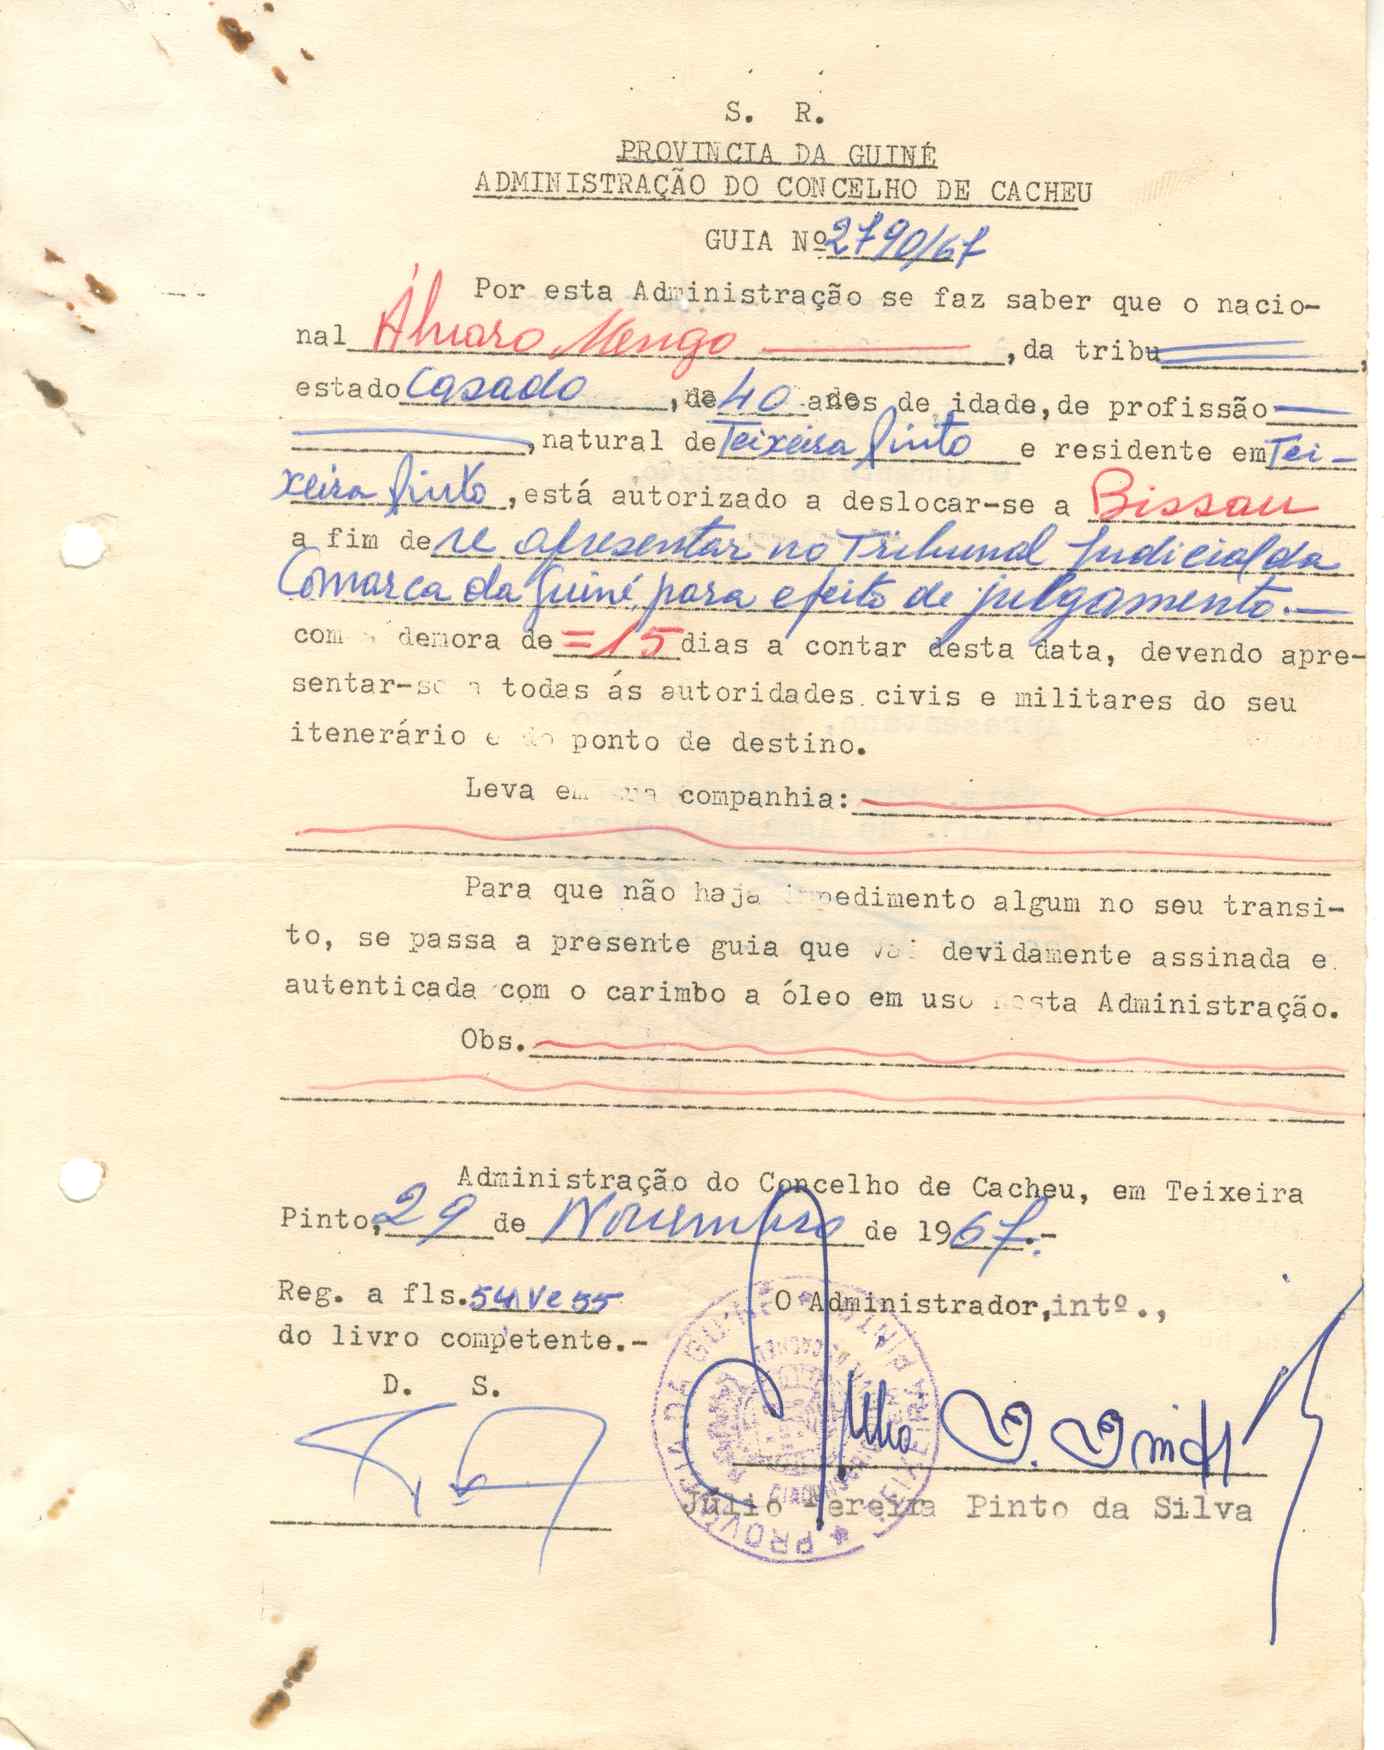 S. R.
PROVINCIA DA GUINÉ
ADMINISTRAÇÃO DO CONCELHO DE CACHEU
GUIA Nº 2790/67
Por esta Administração se faz saber que o nacio-
nal Álvaro Mengo ,da tribu ,
estado Casado ,de 40 anos de idade, de profissão
,natural de Teixeira Pinto e residente em Tei-
xeira Pinto, está autorizado a deslocar-se a Bissau
a fim de se apresentar no Tribunal Judicial da
Comarca da Guiné, para efeito de julgamento.-
com a demora de =15 dias a contar desta data, devendo apre-
sentar-se a todas ás autoridades civis e militares do seu
itenerário e do ponto de destino.
Leva em sua companhia:
Para que não haja impedimento algum no seu transi-
to, se passa a presente guia que vai devidamente assinada e
autenticada com o carimbo a óleo em uso nesta Administração.
Obs.
Administração do Concelho de Cacheu, em Teixeira
Pinto, 29 de Novembro de 1967.-
Reg. a fls. 54v e 55
O Administrador, intº.,
do livro competente.-
D. S.
PROVÍNCIA DA GUINÉ
TEIXEIRA PINTO
Júlio Pereira Pinto da Silva